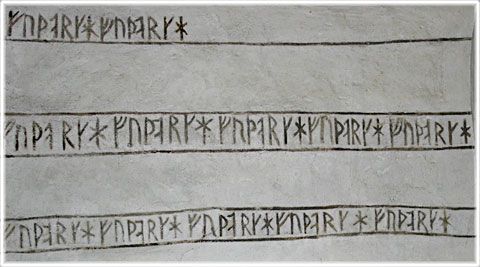 ᚠᚢᚦᛆᚱᚴᚼ ᚠᚢᚦᛆᚱᚴᚼ
ᚠᚢᚦᛆᚱᚴᚼ ᚠᚢᚦᛆᚱᚴᚼ ᚠᚢᚦᛆᚱᚴᚼ ᚠᚢᚦᛆᚱᚴᚼ ᚠᚢᚦᛆᚱᚴᚼ
ᚠᚢᚦᛆᚱᚴᚼ ᚠᚢᚦᛆᚱᚴᚼ ᚠᚢᚦᛆᚱᚴᚼ ᚠᚢᚦᛆᚱᚴᚼ ᚠᚢᚦᛆᚱᚴᚼ